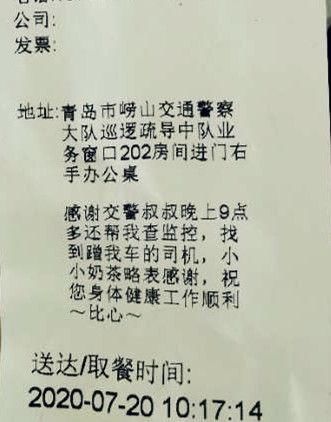 公司:
发票:
地址:青岛市崂山交通警察
大队巡逻疏导中队业
务窗口202房间进门右
手办公桌
感谢交警叔叔晚上9点
多还帮我查监控，找
到蹭我车的司机，小
小奶茶略表感谢，祝
您身体健康工作顺利
～比心～
送达/取餐时间:
2020-07-20 10:17:14